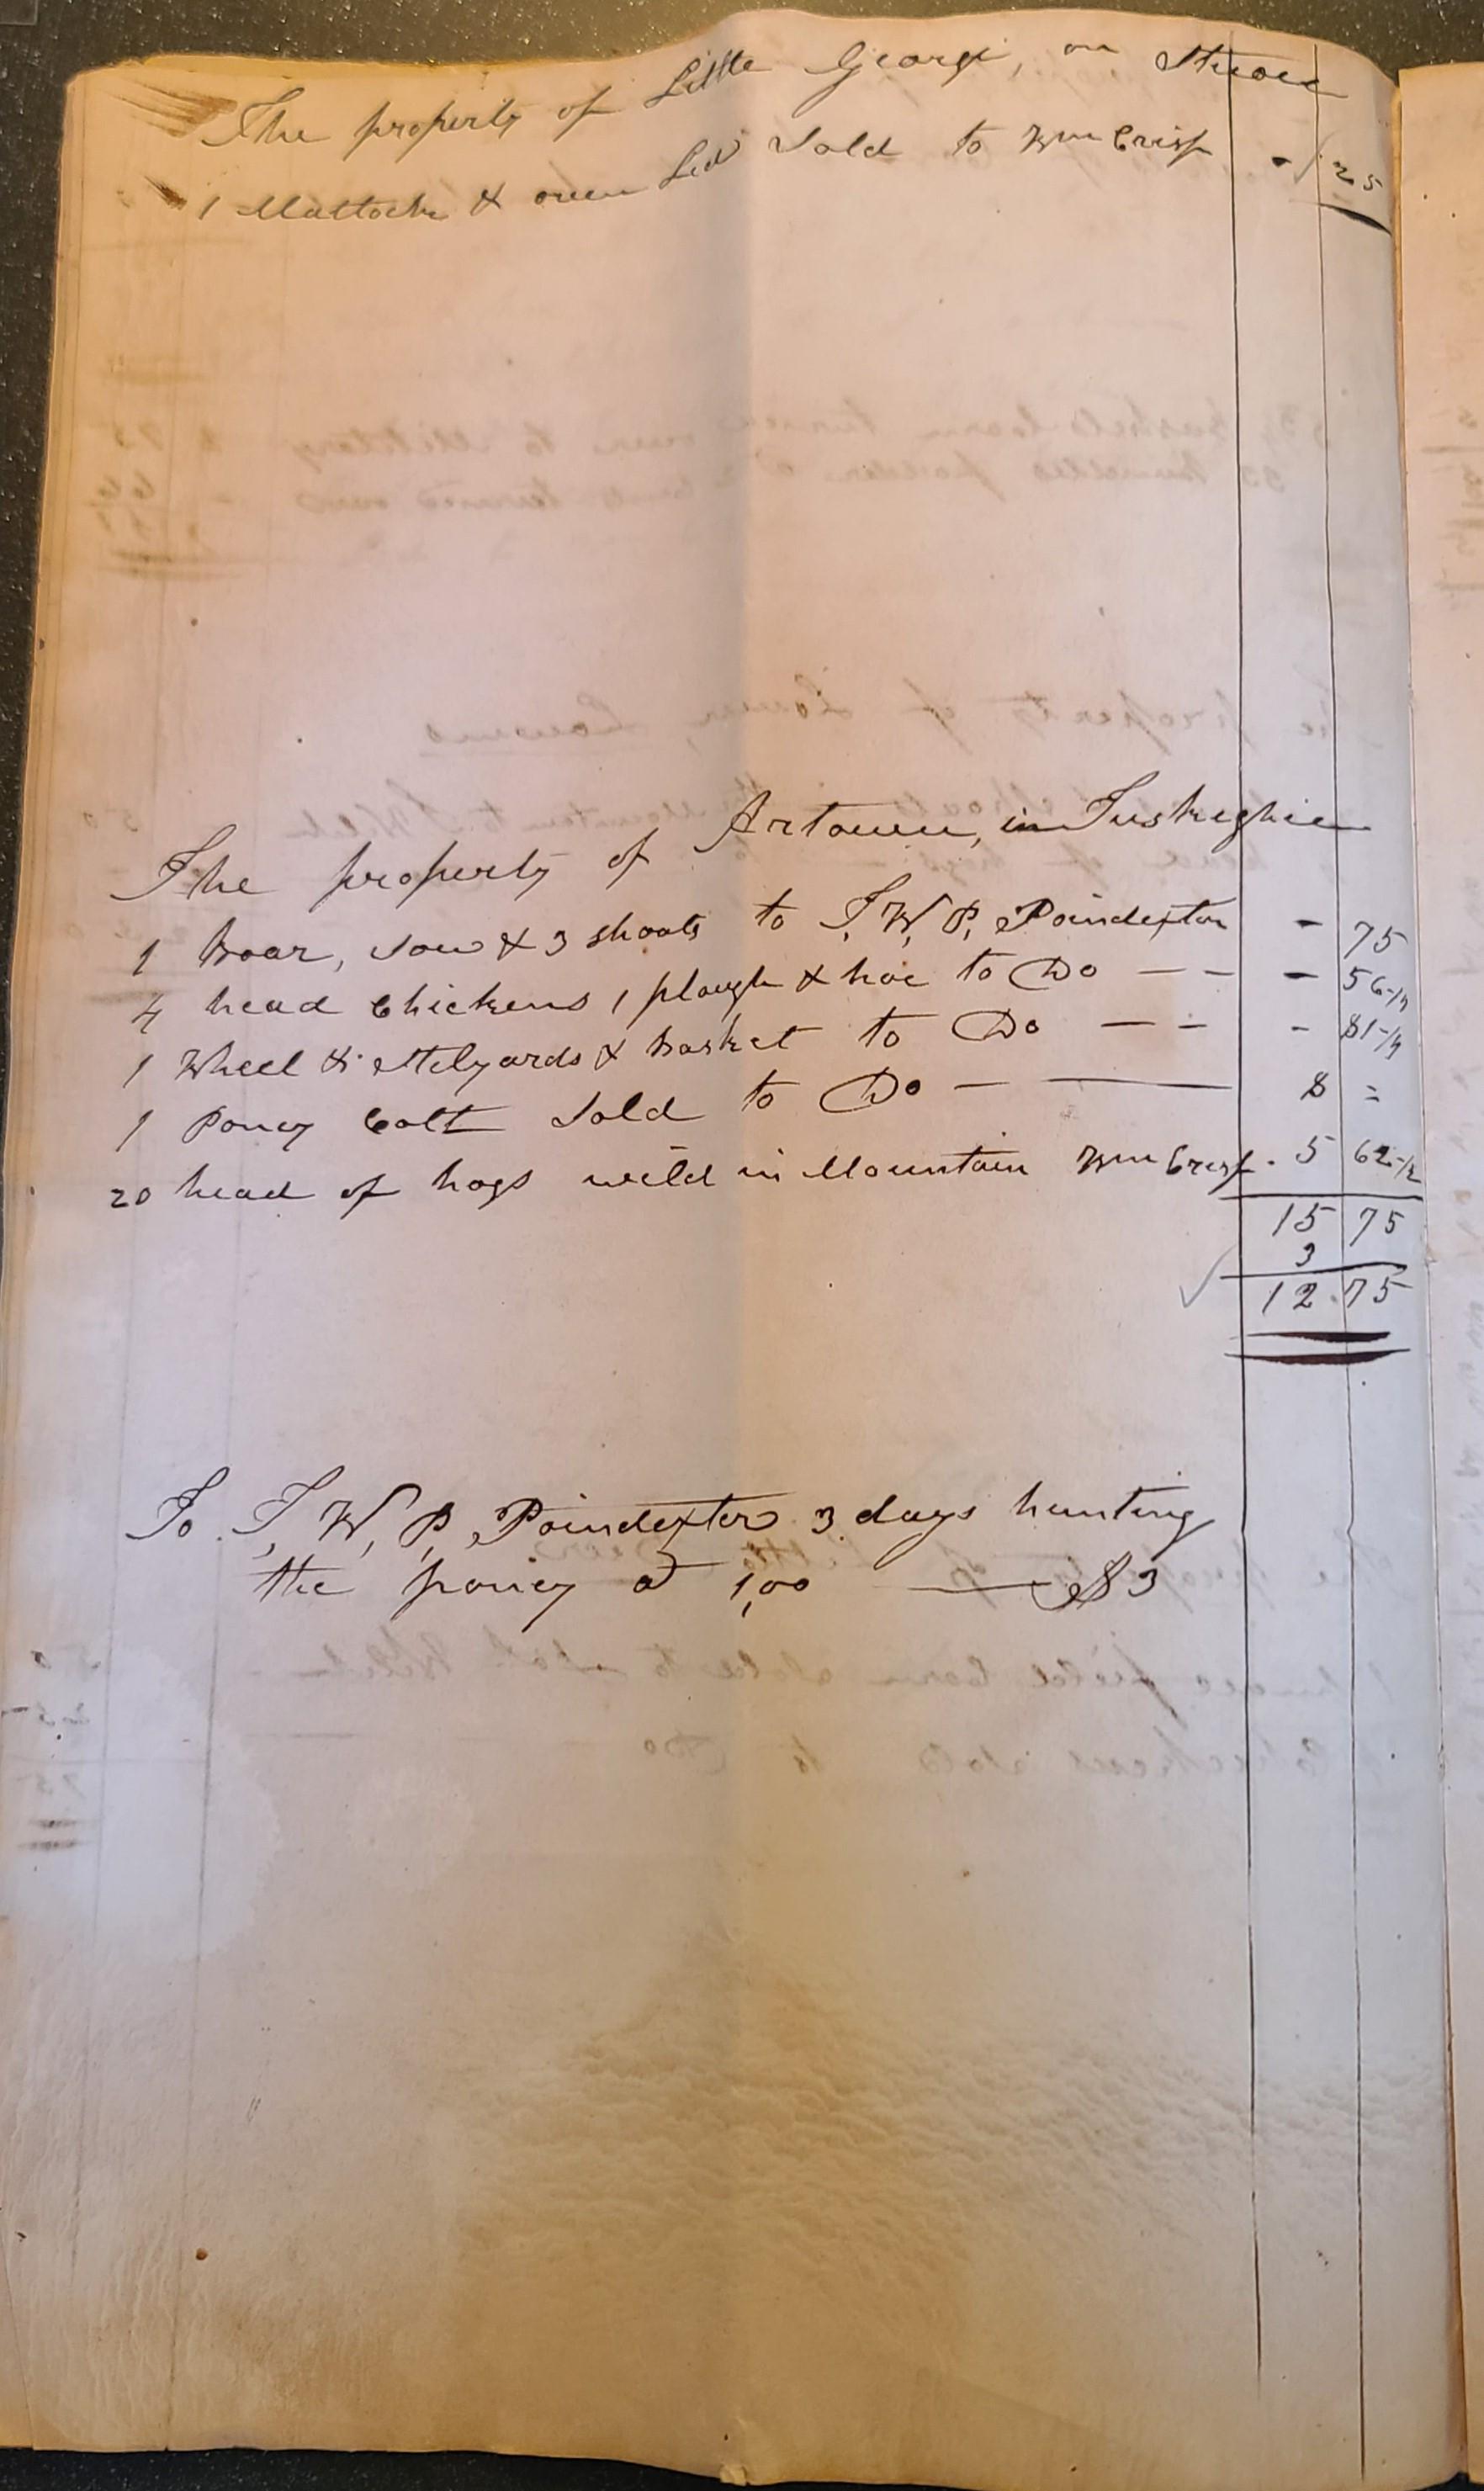 The property of Little George, on
1 Mattock & oven Led Sold to Wm Crisp - 25
The property of Artowee, in Tuskeghee
1 Boar, Sow & 3 shoats to T, W, P, Poindexter - 75
4 head Chickens 1 plough & hoe to Do — - - 56-1/4
1 Wheel & Stelyards & basket to Do — - - 81-1/4
1 Poney Colt Sold to Do — — 8 =
20 head of hogs wild in Mountain Wm Crisp. 5 62-1/2
15 75
3
12.75
To T, W, P, Poindexter 3 days hunting
the poney @ 1,00 — $3